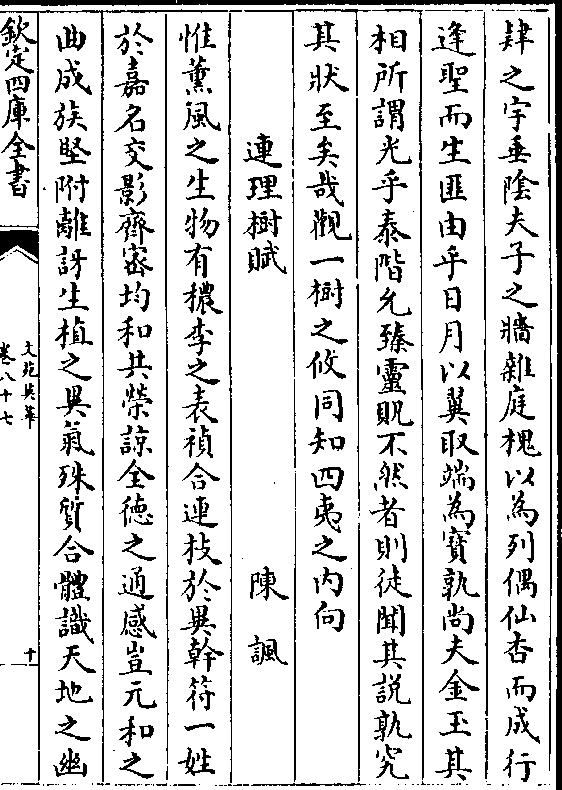 肆之宇垂陰夫子之牆雜庭槐以為列偶仙杏而成行
逢聖而生匪由乎日月以翼取端為寳孰尚夫金玉其
相所謂光乎泰階允臻靈貺不然者則徒聞其説孰究
其狀至矣哉觀一樹之攸同知四夷之内向
連理樹賦 陳諷
惟薰風之生物有穠李之表禎合連枝於異幹符一姓
於嘉名交影齊密均和共榮諒全徳之通感豈元和之
曲成族堅附離訝生植之異氣殊質合體識天地之幽
欽定四庫全書
文苑英華
卷八十七
十